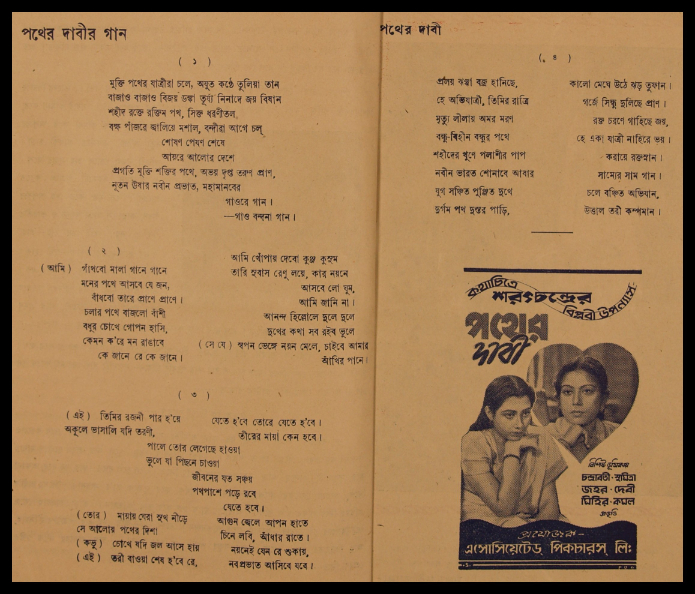 পথের দাবীর গান
( ১ )
মুক্তি পথের যাত্রীরা চলে, অযুত কণ্ঠে তুলিয়া তান
বাজাও বাজাও বিজয় ডঙ্কা তূর্য্য নিনাদে জয় বিষান
শহীদ রক্তে রক্তিম পথ, সিক্ত ধরণীতল,
বক্ষ পাঁজরে জ্বালিয়ে মশাল, বন্দীরা আগে চল্
শোষণ পেষণ শেষে
আয়রে আলোর দেশে
প্রগতি মুক্তি শক্তির পথে, অভয় দৃপ্ত তরুণ প্রাণ,
নূতন ঊষার নবীন প্রভাত, মহামানবের
গাওরে গান।
—গাও বন্দনা গান।
( ২ )
(আমি) গাঁথবো মালা গানে গানে
মনের পথে আসবে যে জন,
বাঁধবো তারে প্রাণে প্রাণে।
চলার পথে বাজলো বাঁশী
বধুর চোখে গোপন হাসি,
কেমন ক'রে মন রাঙাবে
কে জানে রে কে জানে।
আমি খোঁপায় দেবো কুঞ্জ কুসুম
তারি সুবাস রেণু লয়ে, কার নয়নে
আসবে লো ঘুম,
আমি জানি না।
আনন্দ হিল্লোলে দুলে দুলে
দুখের কথা সব রইব ভুলে
(সে যে) স্বপন ভেঙ্গে নয়ন মেলে, চাইবে আমার
আঁখির পানে।
( ৩ )
(এই) তিমির রজনী পার হ'য়ে
অকূলে ভাসালি যদি তরণী,
যেতে হ'বে তোরে যেতে হ'বে।
তীরের মায়া কেন হবে।
পালে তোর লেগেছে হাওয়া
ভুলে যা পিছনে চাওয়া
জীবনের যত সঞ্চয়
পথপাশে পড়ে রবে
যেতে হবে।
(তোর) মায়ায় ঘেরা সুখ নীড়ে
সে আলোয় পথের দিশা
(কভু) চোখে যদি জল আসে হায়
(এই) তরী বাওয়া শেষ হ'বে রে,
আগুন জ্বেলে আপন হাতে
চিনে লবি, আঁধার রাতে।
নয়নেই যেন রে শুকায়,
নবপ্রভাত আসিবে যবে।
পথের দাবী
( ৪ )
প্রলয় ঝঞ্ঝা বজ্র হানিছে,
হে অভিযাত্রী, তিমির রাত্রি
মৃত্যু লীলায় অমর মরণ
বন্ধু-বিহীন বন্ধুর পথে
শহীদের খুণে পলাশীর পাপ
নবীন ভারত শোনাবে আবার
যুগ সঞ্চিত পুঞ্জিত দুখে
দুর্গম পথ দুস্তর পাড়ি,
কালো মেঘে উঠে ঝড় তুফান।
গর্জে সিন্ধু দুলিছে প্রাণ।
রক্ত চরণে গাহিছে জয়,
হে একা যাত্রী নাহিরে ভয়।
করায়ে রক্তস্নান।
সাম্যের সাম গান।
চলে বঞ্চিত অভিযান,
উত্তাল তরী কম্পমান।
কথাচিত্রে
শরৎচন্দ্রের
বিপ্লবী উপন্যাস-
পথের
দাবী
বিশিষ্ট ভূমিকায়
চন্দ্রাবতী·সুমিত্রা
জহর·দেবী
মিহির·কমল
প্রভৃতি
প্রযোজক—
এসোসিয়েটেড্ পিকচারস্ লিঃ